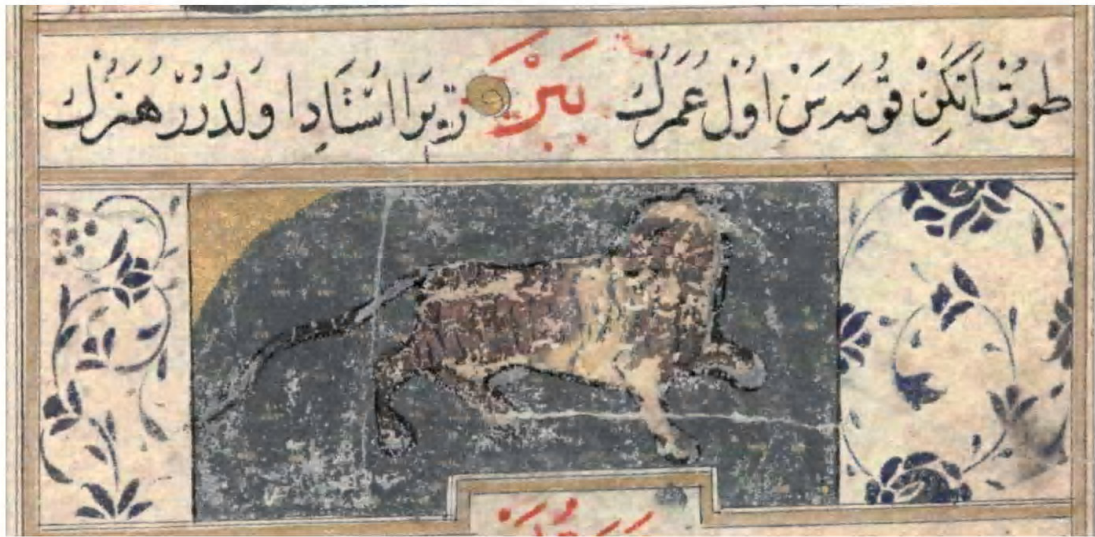 طُوتْ اَنكَنْ قُومَدسَنْ اوُل عُمَرُكْ بَبْر زِيرَا اُسْتَادِا وَلدُرُرْ هنَرُكْ